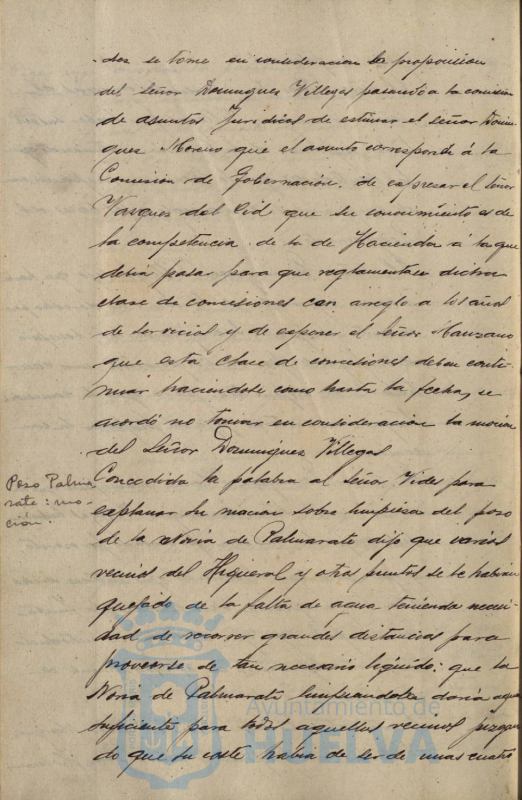 dos se tome en consideracion la proposicion
del señor Dominguez Villegas pasando a la comision
de asuntos Juridicos de estimar el señor Domin
guez Moreno que el asunto corresponde á la
Comision de Gobernación. de expresar el Señor
Vasques del Cid que su conocimiento es de
la competencia de la de Hacienda á la que
debia pasar para que reglamentase dicha
clase de concesiones con areglo a los años
de servicios y de exponer el Señor Manzano
que esta clase de concesiones deben conti-
nuar haciendose como hasta la fecha, se
acordó no tomar en consideracion la mocion
del Señor Dominguez Villegas
Pozo Palma
rate: mo-
ción.
Concedida la palabra al Señor Vides para
explanar su mocion sobre limpiesa del pozo
de la Noria de Palmarate dijo que varios
vecinos del Higueral y otros puntos se le habian
quejado de la falta de agua teniendo necesi
dad de recorrer grandes distancias para
proveerse de tan necesario liquido: que la
Noria de Palmarate limpiandola daria agua
suficiente para todos aquellos vecinos juzgan
do que su coste habia de ser de unas cuatro
Ayuntamiento de
HUELVA